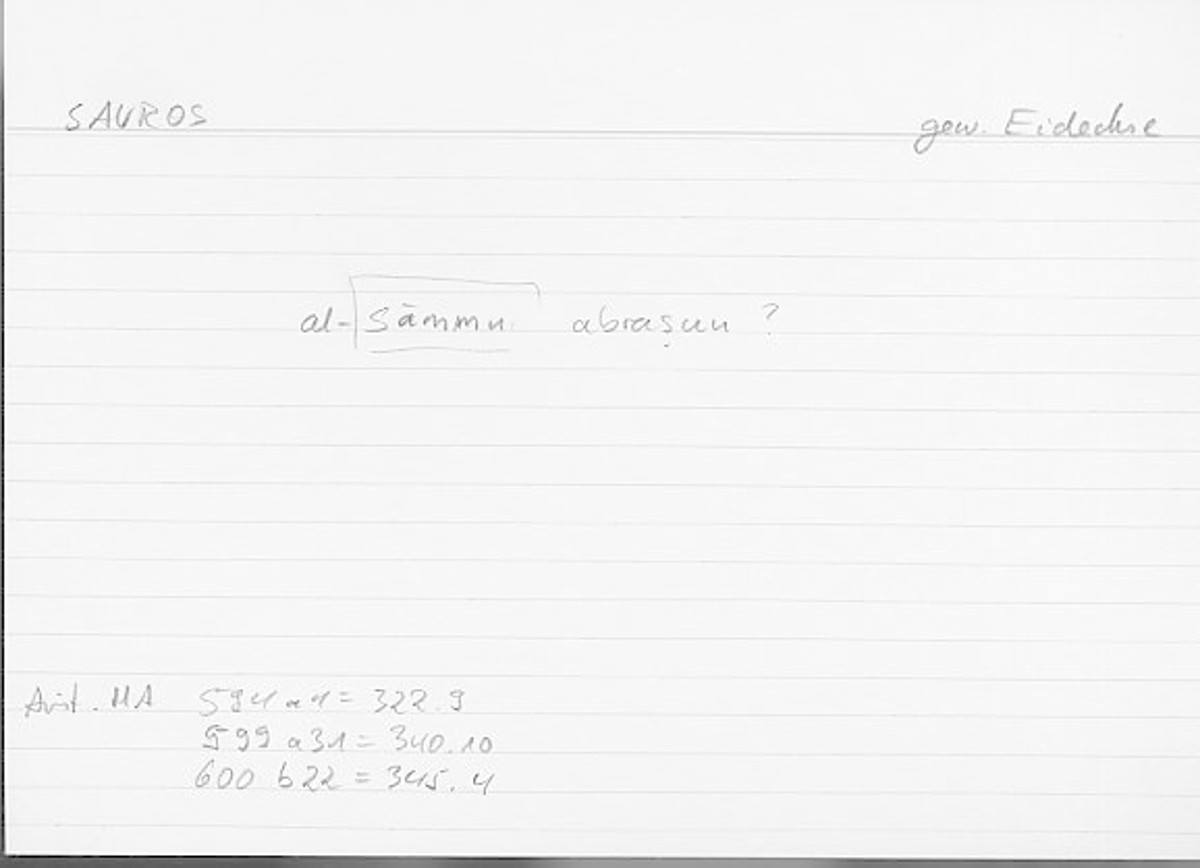 SAUROS gew. Eidechse
al-sāmmu abraṣun ?
Arist. HA 594 a4 = 322.9
599 a31 = 340.10
600 b22 = 345.4